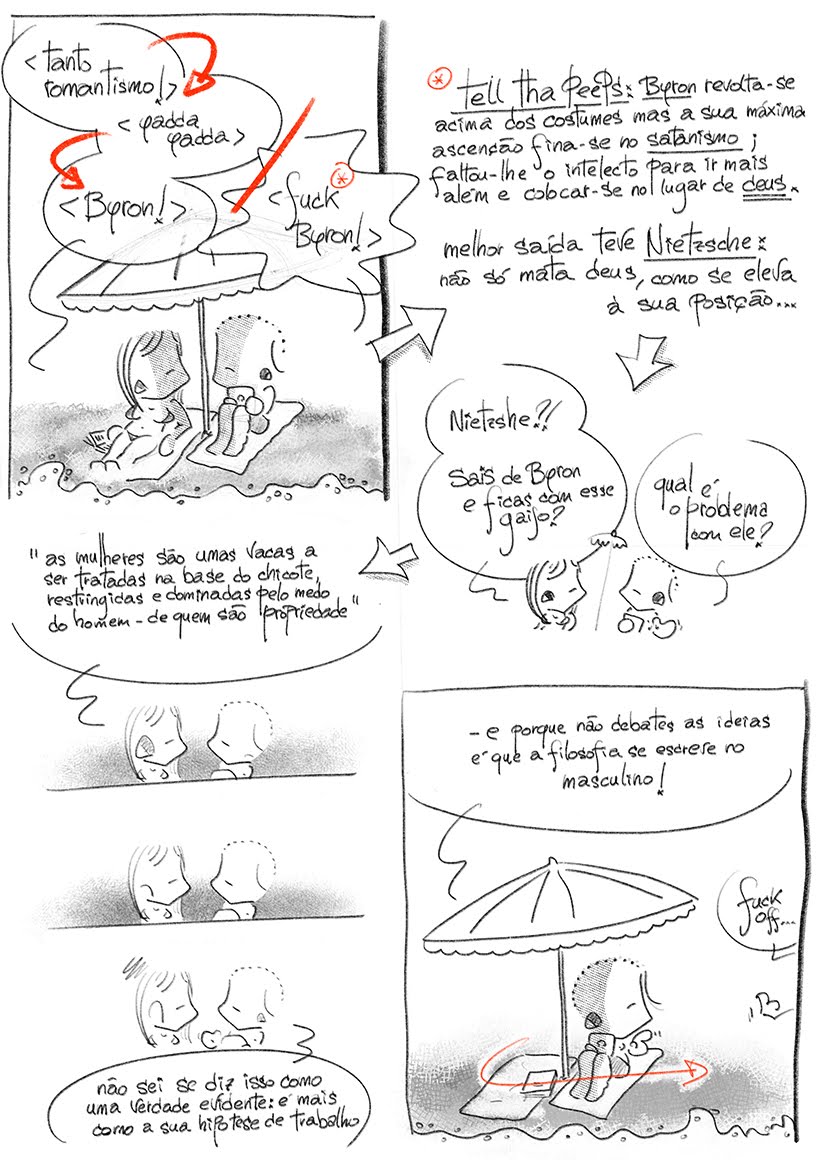 <tanto
romantismo!>
<yadda
yadda>
<Byron!>
<fuck
Byron!>
tell tha peeps: Byron revolta-se
acima dos costumes mas a sua máxima
ascenção fina-se no satanismo;
faltou-lhe o intelecto para ir mais
além e colocar-se no lugar de deus.
melhor saída teve Nietzsche:
não só mata deus, como se eleva
à sua posição...
Nietzshe?!
sais de Byron
e ficas com esse
gaijo?
qual é
o problema
com ele?
"as mulheres são umas vacas a
ser tratadas na base do chicote,
restringidas e dominadas pelo medo
do homem - de quem são propriedade"
não sei se diz isso como
uma verdade evidente: é mais
como a sua hipótese de trabalho
- e porque não debates as ideias
é que a filosofia se escreve no
masculino!
fuck
off...